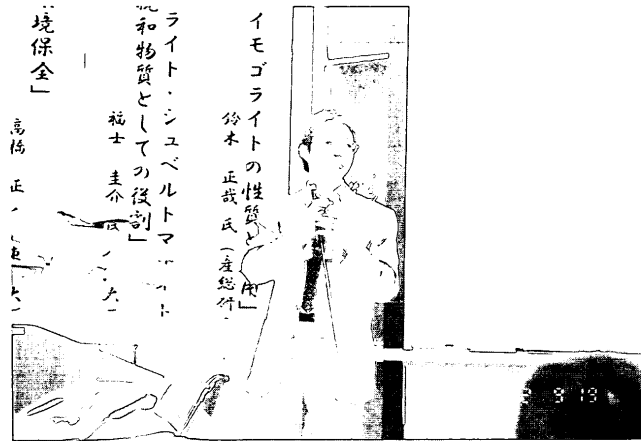 イモゴライトの性質と 用」
鈴木 正哉 氏 (産総研
ライト・シュベルトマ イト
和物質としての役割」
福士 圭介 氏
境保全」
高橋 正
9 19